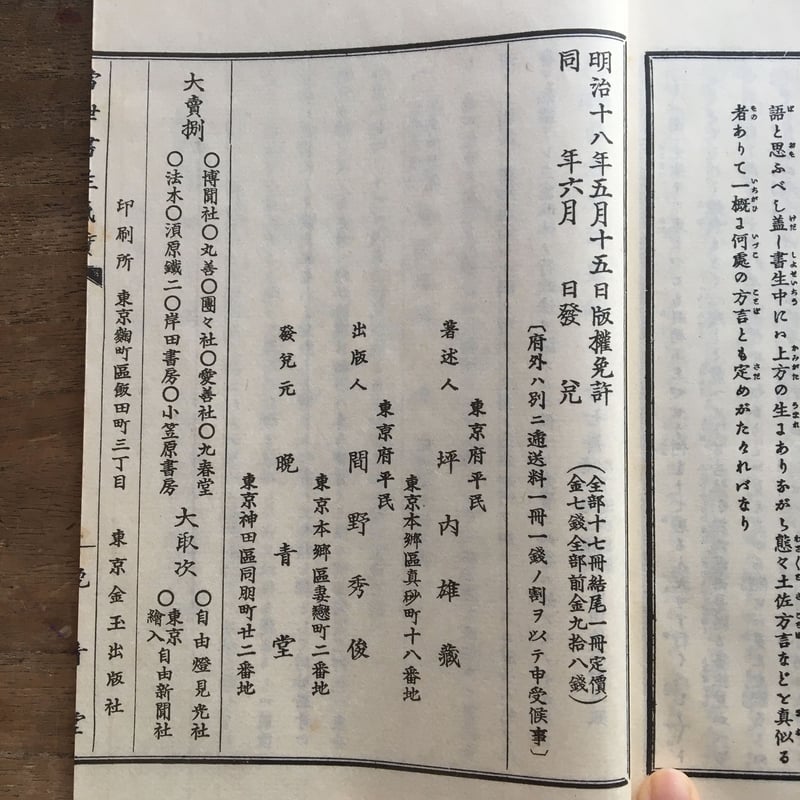 語と思ふべし蓋し書生中にハ上方の生まありながら態々土佐方言などと真似る
者ありて一概ま何處の方言とも定めがたけれバなり
明治十八年五月十五日版權免許
同　年六月　日發兌
(全部十七冊結尾一冊定價
金七錢全部前金九拾八錢)
〔府外ハ別ニ逓送料一冊一錢ノ割ヲ以テ申受候事〕
東京府平民
著述人　坪内雄藏
東京本郷區真砂町十八番地
東京府平民
出版人　間野秀俊
東京本郷區妻戀町二番地
發兌元　晩青堂
東京神田區同朋町廿二番地
大賣捌
〇博聞社〇丸善〇團々社〇愛善社〇九春堂
〇法木〇須原鐵二〇岸田書房〇小笠原書房
大取次
〇自由燈見光社
〇東京繪入自由新聞社
印刷所　東京麹町區飯田町三丁目　東京金玉出版社